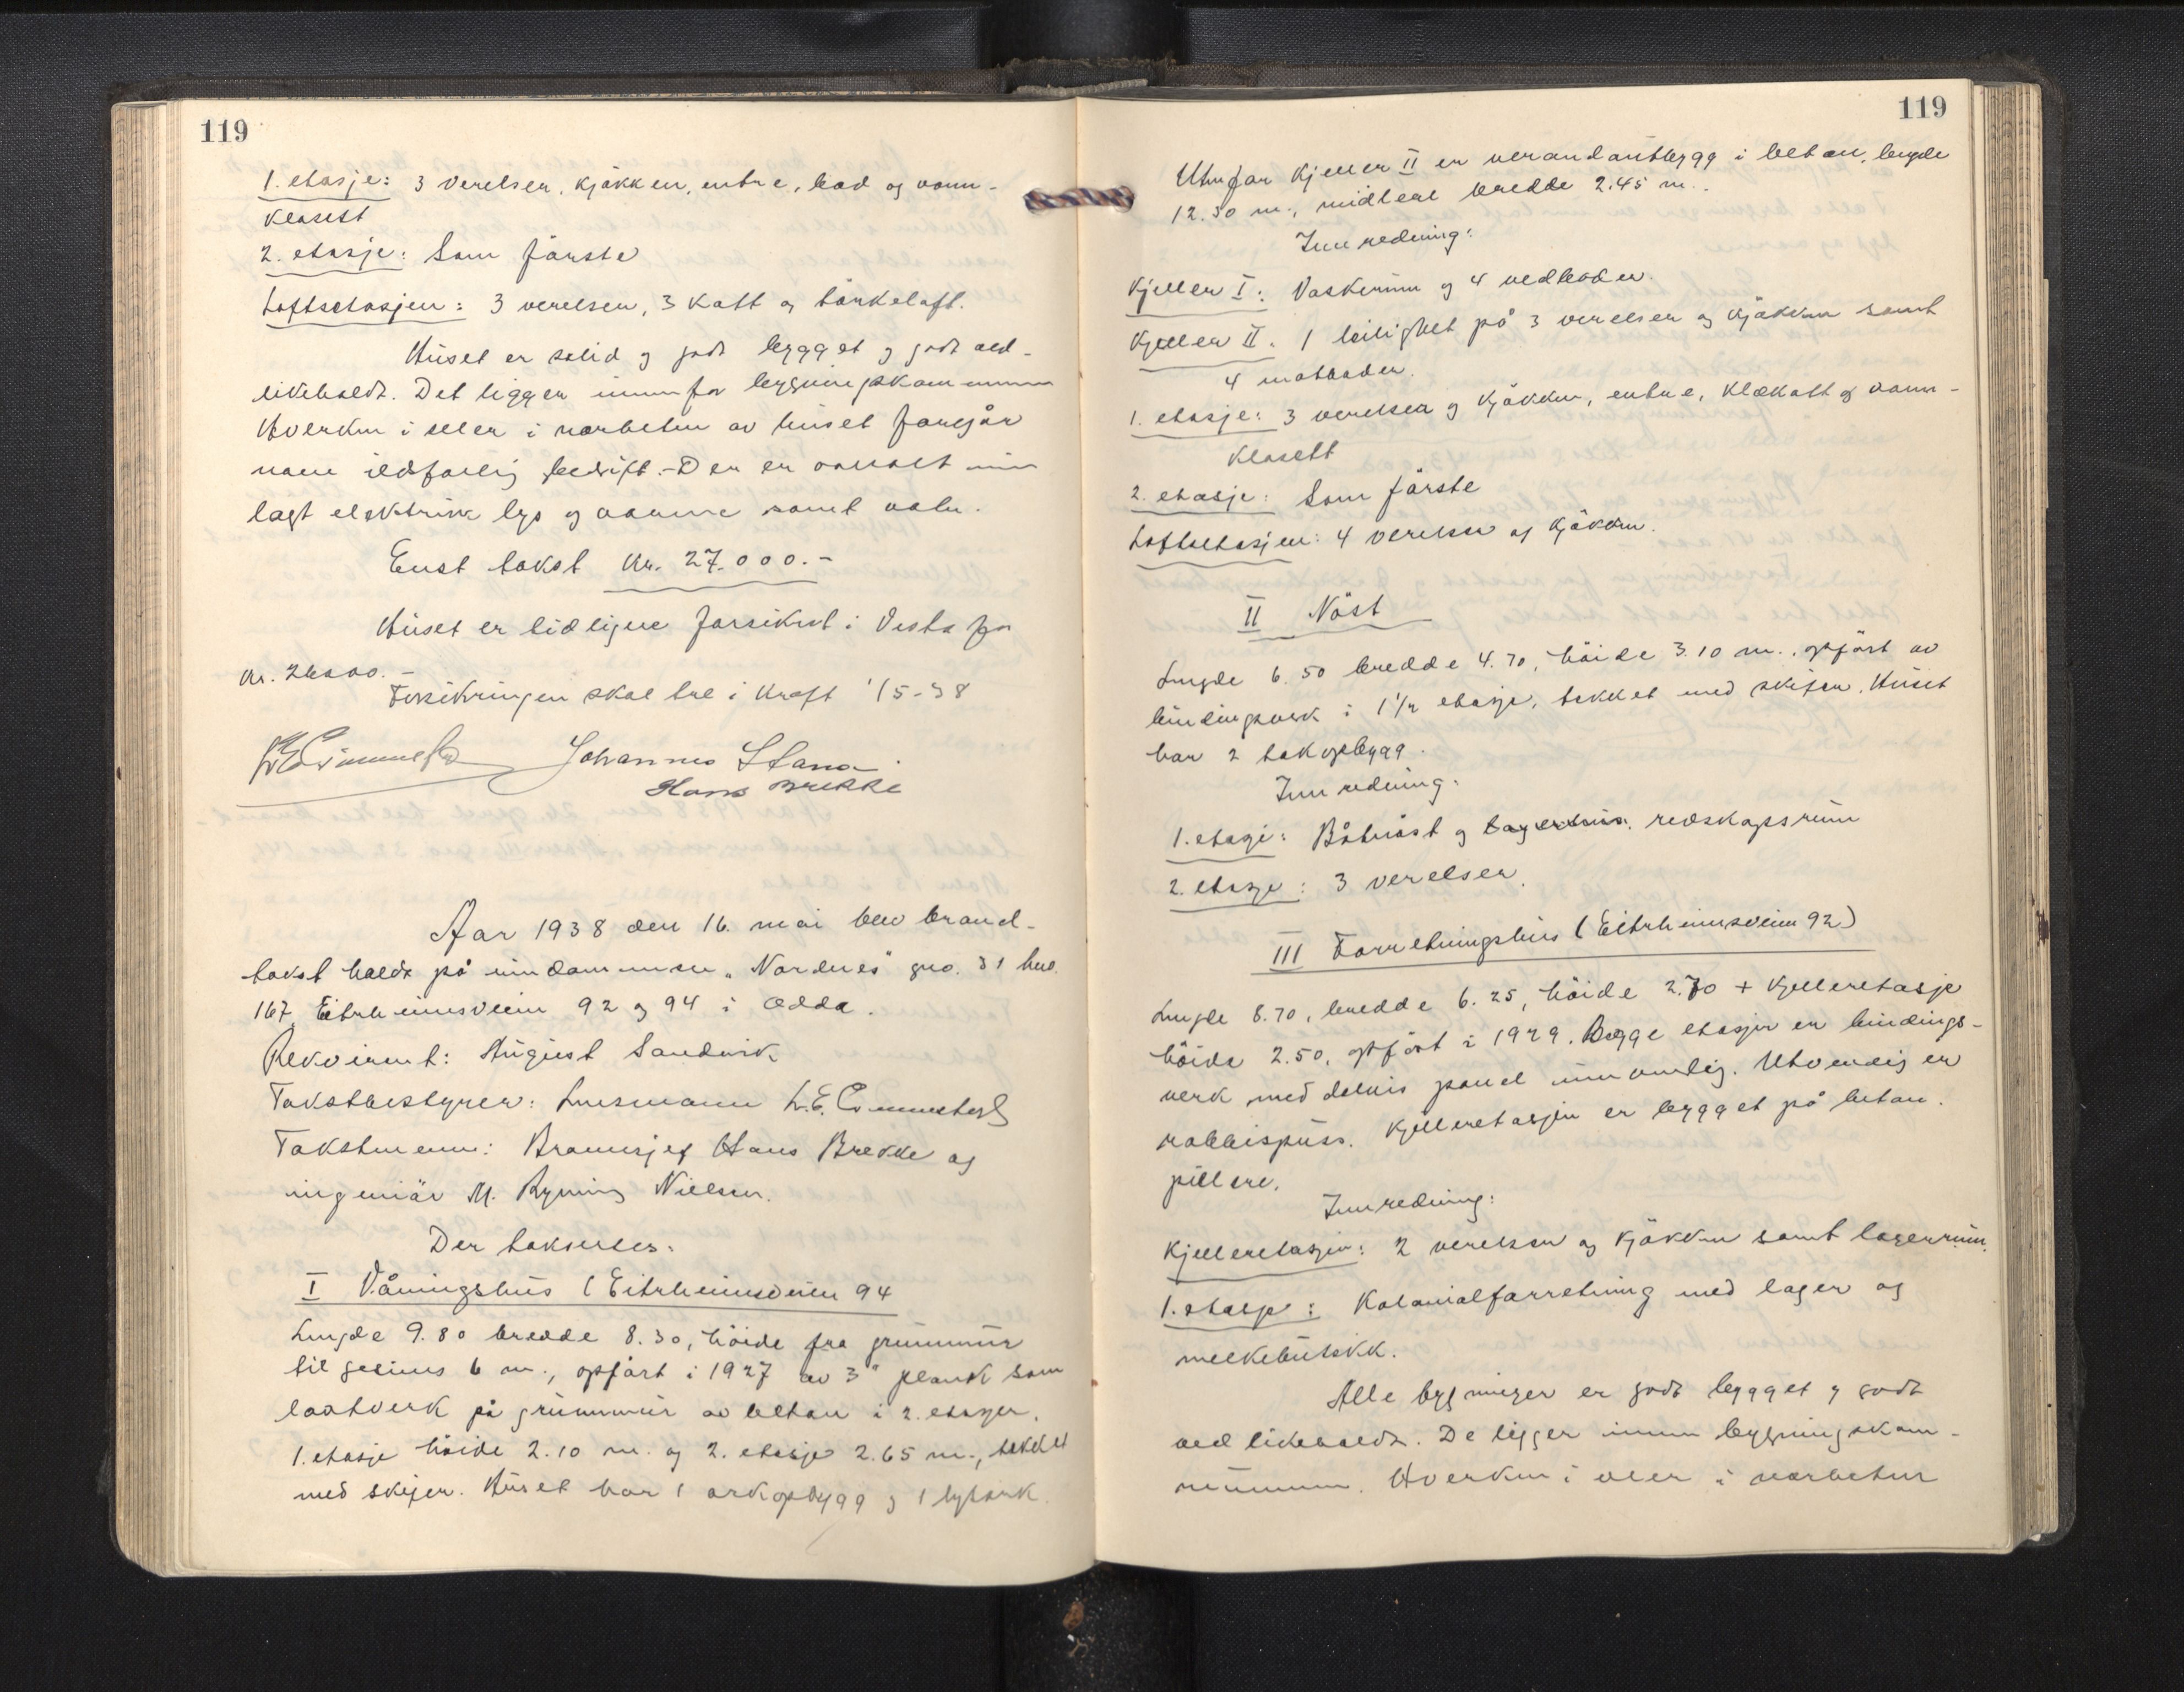 119
1. etasje: 3 verelser, kjøkken, entre, bad og vann-
klosett
2. etasje: Som første
Loftsetasjen: 3 verelser, 3 kott og tørkeloft.
Huset er solid og godt bygget og godt ved-
likeholdt. Det ligger innenfor bygningskommunen
Hverken i eller i nærheten av huset foregår
noen ildfarlig bedrift. - Der er overalt inn
lagt elektrisk lys og varme samt vatn.
Enst. takst kr. 27.000.-
Huset er tidligere forsikret i Vesta for
kr. 26000.-
Forsikringen skal tre i kraft 1/5-38
Johannes Stana
Hans Brekke
Aar 1938 den 16. mai blev brand-
takst holdt på eiendommen "Nordnes" gno. 31 bno.
167, Eitrheimsveien 92 og 94 i Odda.
Rekvirent: August Sandvik
Takstbestyrer: Lensmann L. E.
Takstmenn: Brannsjef Hans Brekke og
ingeniør M. Ryning Nielsen.
Der takseres:
I Våningshus (Eitrheimsveien 94
Lengde 9.80 bredde 8.30, høide fra grunnmur
til gesims 6 m., opført i 1927 av 3" plank som
lastverk på grunnmur av beton i 2. etasjer.
1. etasje høide 2.10 m. og 2. etasje 2.65 m., tekket
med skifer. Huset har 1 arkopbygg og 1 lysark.
119
Utenfor kjeller II er verandautbygg i beton, lengde
12.30 m., midlere bredde 2.45 m..
Innredning:
Kjeller I: Vaskerum og 4 vedboder.
Kjeller II: 1 leilighet på 3 verelser og kjøkken samt
4 matboder.
1. etasje: 3 verelser og kjøkken, entre, klækott og vann-
klosett
2. etasje: Som første
Loftsetasjen: 4 verelser og kjøkken.
II Nøst
Lengde 6.50 bredde 4.70, høide 3.10 m., opført av
bindingsverk i 1 1/2 etasje, tekket med skifer. Huset
har 2 takopbygg.
Innredning:
1. etasje: Båtnøst og redskapsrum
2. etasje: 3 verelser.
III Forretningshus (Eitrheimsveien 92)
Lengde 8.70, bredde 6.25, høide 2.70 + kjelleretasje
høide 2.50, opført i 1929. Begge etasjer er bindings-
verk med delvis panel innvendig. Utvendig er
rabbispuss. Kjelleretasjen er bygget på beton.
pillere.
Innredning:
Kjelleretasjen: 2 verelser og kjøkken samt lagerrum.
1. etasje: Kolonialforretning med lager og
melkebutikk.
Alle bygninger er godt bygget og godt
vedlikeholdt. De ligger innen bygningskom-
munen. Hverken i eller i nærheten